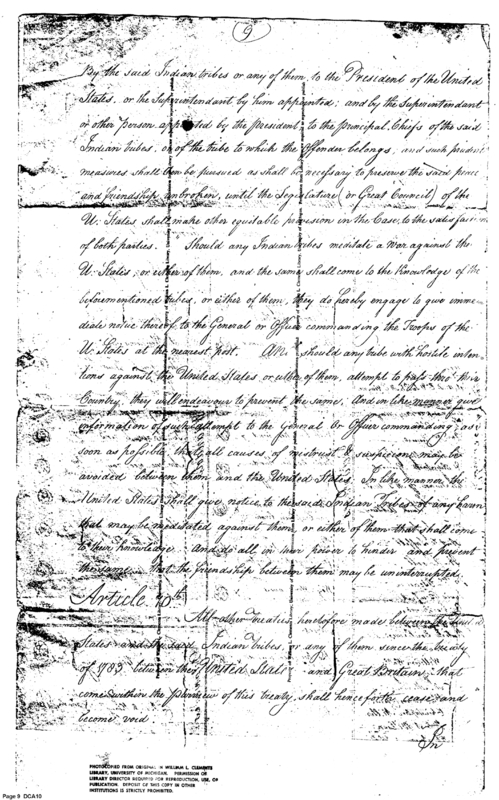 9
By the said Indian tribes or any of them, to the President of the United
States, or the Superintendant by him appointed; and by the Superintendant
or other person appointed by the President, to the principal Chiefs of the said
Indian tribes, or of the tribe to which the Offender belongs, and such prudent
measures shall then be pursued as shall be necessary to preserve the said peace
and friendship unbroken, until the Legislature (or Great Council) of the
U. States shall make other equitable provision in the Case, to the satisfaction
of both parties. Should any Indian tribes meditate a War against the
U. States, or either of them, and the same shall come to the Knowledge of the
beforementioned tribes, or either of them, they do hereby engage to give imme-
diate notice thereof to the General or Officer commanding the Troops of the
U. States at the nearest post. And should any tribe with hostile inten-
tions against the United States or either of them, attempt to pass thro' their
Country, they will endeavour to prevent the same. And in like manner give
information of such attempt to the General or Officer commanding, as
soon as possible, that all causes of mistrust & suspicion may be
avoided between them and the United States. In like manner the
United States shall give notice to the said Indian Tribes of any harm
that may be meditated against them, or either of them that shall come
to their knowledge. And do all in their power to hinder and prevent
the same. That the friendship between them may be uninterrupted.
Article 10th
All other treaties heretofore made between the United
States and the said Indian tribes, or any of them since the treaty
of 1783 between the United States and Great Britain, that
come within the purview of this treaty, shall henceforth cease and
become void
In
PHOTOCOPIED FROM ORIGINAL IN WILLIAM L. CLEMENTS
LIBRARY, UNIVERSITY OF MICHIGAN. PERMISSION OF
LIBRARY DIRECTOR REQUIRED FOR REPRODUCTION, USE, OR
PUBLICATION. DEPOSIT OF THIS COPY IN OTHER
INSTITUTIONS IS STRICTLY PROHIBITED.
Page 9 DCA10